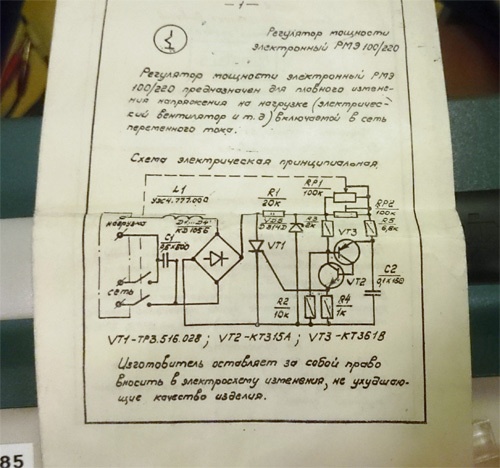 — 1 —
Регулятор мощности
электронный РМЭ 100/220
Регулятор мощности электронный РМЭ
100/220 предназначен для плавного измене-
ния напряжения на нагрузке (электричес-
кий вентилятор и т.д) включаемой в сеть
переменного тока.
Схема электрическая принципиальная
RP1
100к
L1
R1
20к
RP2
100к
нагрузка
Д1...Д4
КД105Б
Д814Д
R3
2к
R5
6,8к
C1
VT1
VT3
VT2
C2
0,1х160
сеть
R2
10к
R4
1к
VT1-ТР3.516.028; VT2-КТ315А; VT3-КТ361В
Изготовитель оставляет за собой право
вносить в электросхему изменения, не ухудшаю-
щие качество изделия.
85